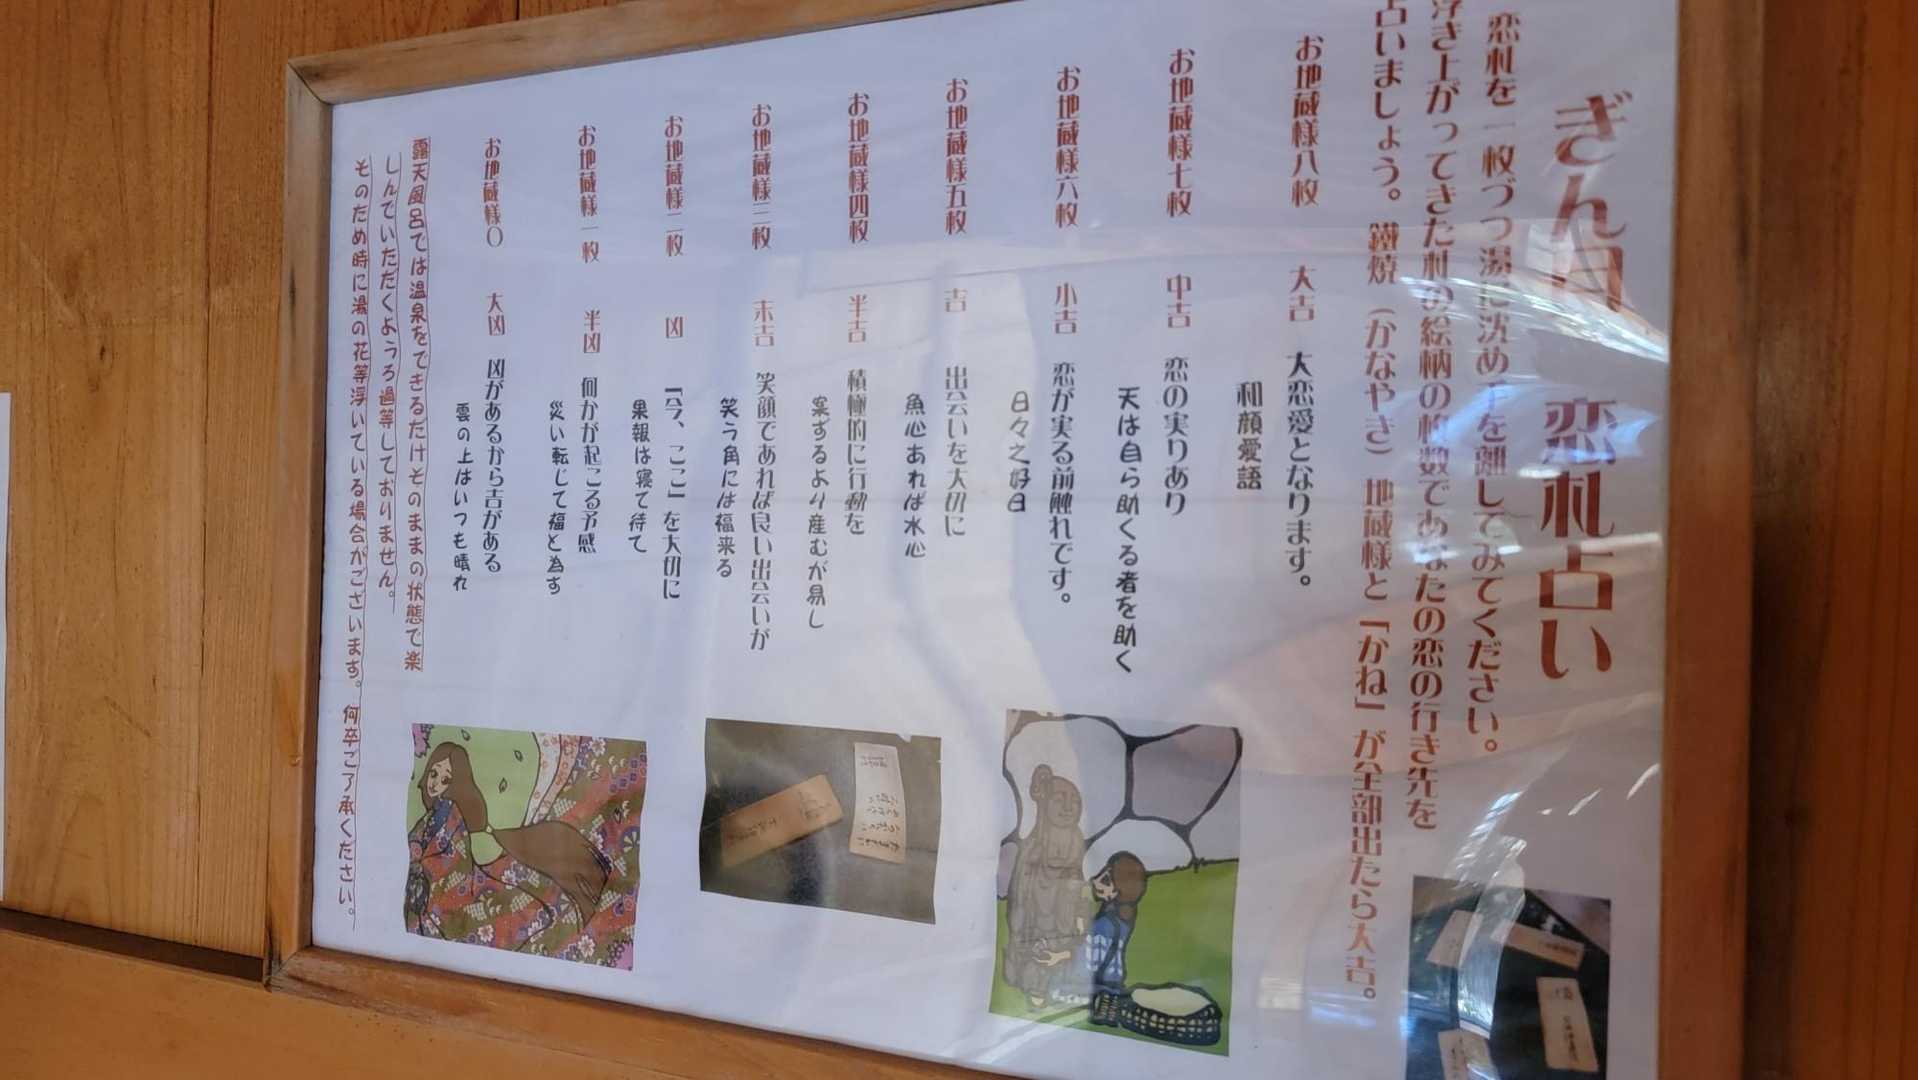 ぎん月　恋札占い
恋札を一枚づつ湯に沈め手を離してみてください。
浮き上がってきた札の絵柄の枚数であなたの恋の行き先を
占いましょう。鐵焼（かなやき）地蔵様と「かね」が全部出たら大吉。
お地蔵様八枚　大吉　大恋愛となります。
和顔愛語
お地蔵様七枚　中吉　恋の実りあり
天は自ら助くる者を助く
お地蔵様六枚　小吉　恋が実る前触れです。
日々之好日
お地蔵様五枚　吉　出会いを大切に
魚心あれば水心
お地蔵様四枚　半吉　積極的に行動を
案ずるより産むが易し
お地蔵様三枚　末吉　笑顔であれば良い出会いが
笑う角には福来る
お地蔵様二枚　凶　「今、ここ」を大切に
果報は寝て待て
お地蔵様一枚　半凶　何かが起こる予感
災い転じて福と為す
お地蔵様〇　大凶　凶があるから吉がある
雲の上はいつも晴れ
露天風呂では温泉をできるだけそのままの状態で楽
しんでいただくようろ過等しておりません。
そのため時に湯の花等浮いている場合がございます。何卒ご了承ください。